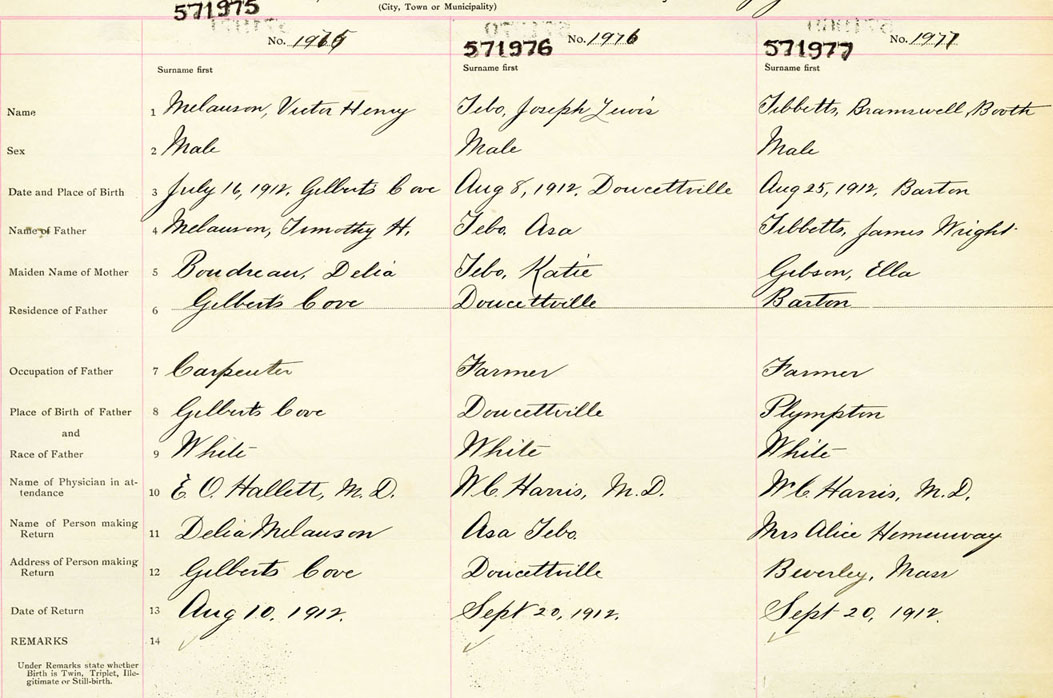 571975
(City, Town or Municipality)
571976
571977
No. 1975
No. 1976
No. 1977
Surname first
Surname first
Surname first
Name 1 Melauson, Victor Henry
Tebo, Joseph Lewis
Tibbetts, Bramswell Booth
Sex 2 Male
Male
Male
Date and Place of Birth 3 July 16, 1912. Gilberts Cove
Aug 8, 1912. Doucettville
Aug 25, 1912. Barton
Name of Father 4 Melauson, Timothy H.
Tebo, Asa
Tibbetts, James Wright
Maiden Name of Mother 5 Boudreau, Delia
Tebo, Katie
Gibson, Ella
Residence of Father 6 Gilberts Cove
Doucettville
Barton
Occupation of Father 7 Carpenter
Farmer
Farmer
Place of Birth of Father 8 Gilberts Cove
Doucettville
Plympton
and
Race of Father 9 White
White
White
Name of Physician in at-
tendance 10 E. O. Hallett, M.D.
W C Harris, M.D.
W C Harris, M.D.
Name of Person making
Return 11 Delia Melauson
Asa Tebo
Mrs Alice Hemenway
Address of Person making
Return 12 Gilberts Cove
Doucettville
Beverley, Mass
Date of Return 13 Aug 10, 1912.
Sept 20, 1912.
Sept 20, 1912.
REMARKS 14
Under Remarks state whether
Birth is Twin, Triplet, Ille-
gitimate or Still-birth.